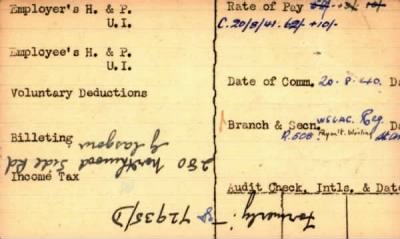 Employer's H. & P.
U.I.
Employee's H. & P.
U.I.
Voluntary Deductions
Billeting
Income Tax
280 Northwood Side Rd
Glasgow
72935/D
Rate of Pay
C. 20/8/41. 62/- +10/-
Date of Comm. 20.8.40. Da
Branch & Secn. Reg. Da
R.508.
Audit Check, Intls. & Date
Formerly:-